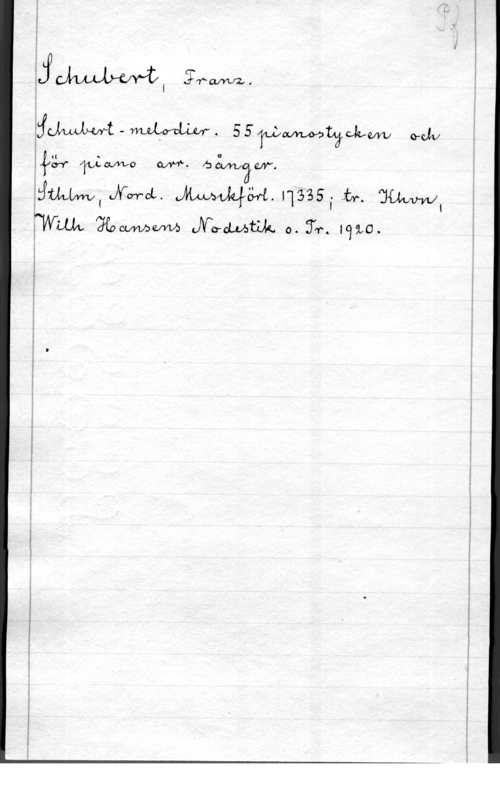 Schubert, Franz.
Schubert-melodier. 55 pianostycken och
för piano arr. sånger.
Sthlm, Nord. Musikförl. 17335; tr. Khvn,
Wilh Hansens Nodestik o. Tr. 1920.